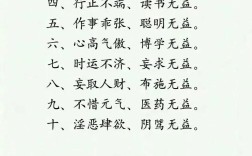 四、行止不端、读书无益。
五、作事乖张、聪明无益。
六、心高气傲、博学无益。
七、时运不济、妄求无益。
八、妄取人财、布施无益。
九、不惜元气、医药无益。
十、淫恶肆欲、阴骘无益。